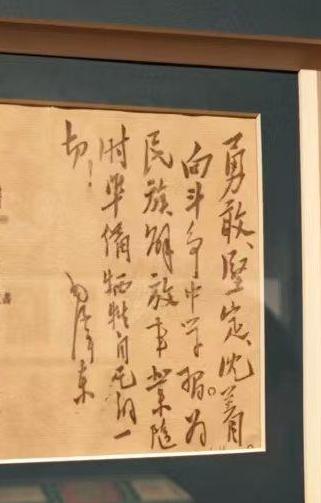 勇敢、堅定、沈着。
向斗争中学習。为
民族解放事業随
时準備牺牲自己的一
切！
毛澤東